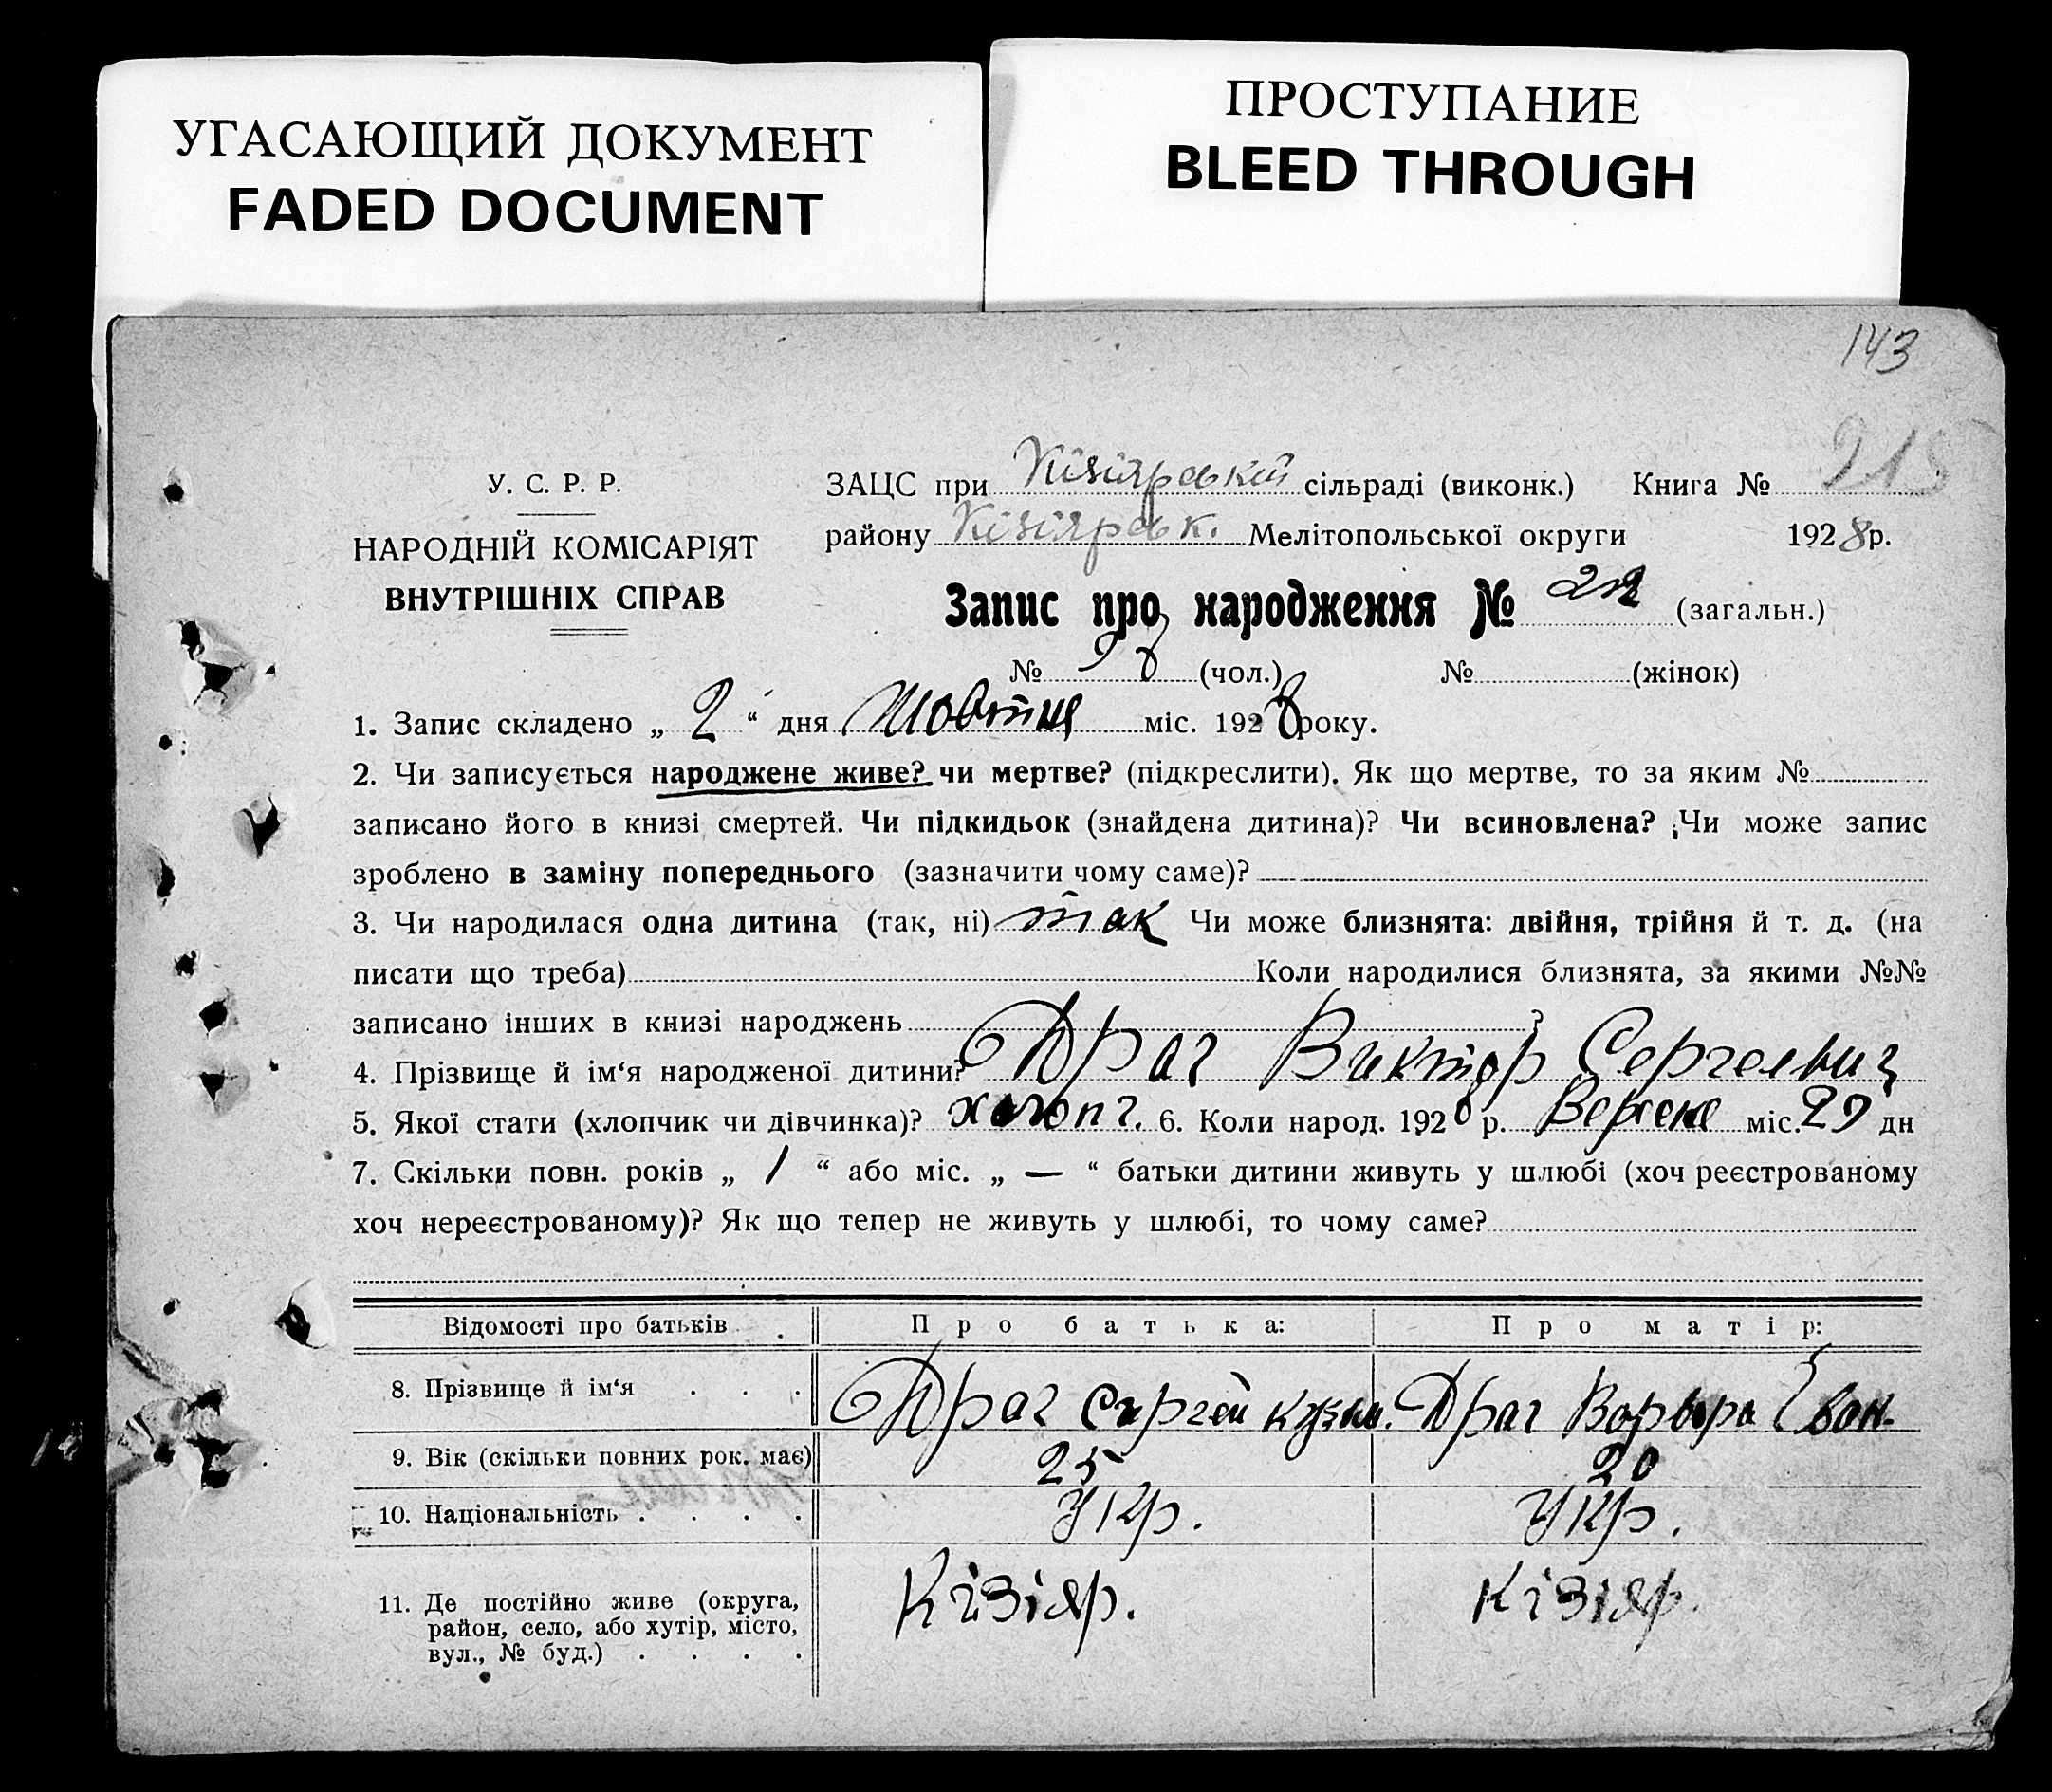 УГАСАЮЩИЙ ДОКУМЕНТ
FADED DOCUMENT
ПРОСТУПАНИЕ
BLEED THROUGH
143
У. С. Р. Р.
НАРОДНІЙ КОМІСАРІЯТ
ВНУТРІШНІХ СПРАВ
ЗАЦС при Кізіярській сільраді (виконк.) Книга №
району Кізіярськ. Мелітопольської округи 1928р.
Запис про народження № (загальн.)
№ 98 (чол.) № (жінок)
1. Запис складено „ 2 “ дня Жовтня міс. 1928 року.
2. Чи записується народжене живе? чи мертве? (підкреслити). Як що мертве, то за яким №
записано його в книзі смертей. Чи підкидьок (знайдена дитина)? Чи всиновлена? Чи може запис
зроблено в заміну попереднього (зазначити чому саме)?
3. Чи народилася одна дитина (так, ні) так Чи може близнята: двійня, трійня й т. д. (на
писати що треба) Коли народилися близнята, за якими №№
записано інших в книзі народжень ?
4. Прізвище й ім‘я народженої дитини? Драг Виктор Сергеевич
5. Якої стати (хлопчик чи дівчинка)? хлопч. 6. Коли народ. 1928 р. Вересня міс. 29 дн
7. Скільки повн. років „ 1 “ або міс. „ — “ батьки дитини живуть у шлюбі (хоч реєстрованому
хоч нереєстрованому)? Як що тепер не живуть у шлюбі, то чому саме?
Відомості про батьків Про батька: Про матір:
8. Прізвище й ім‘я . . . Драг Сергей Кузьм. Драг Варвара Іван.
9. Вік (скільки повних рок. має) 25 20
10. Національність . . . . Укр. Укр.
11. Де постійно живе (округа, Кізіяр. Кізіяр.
район, село, або хутір, місто,
вул., № буд.) . . . .